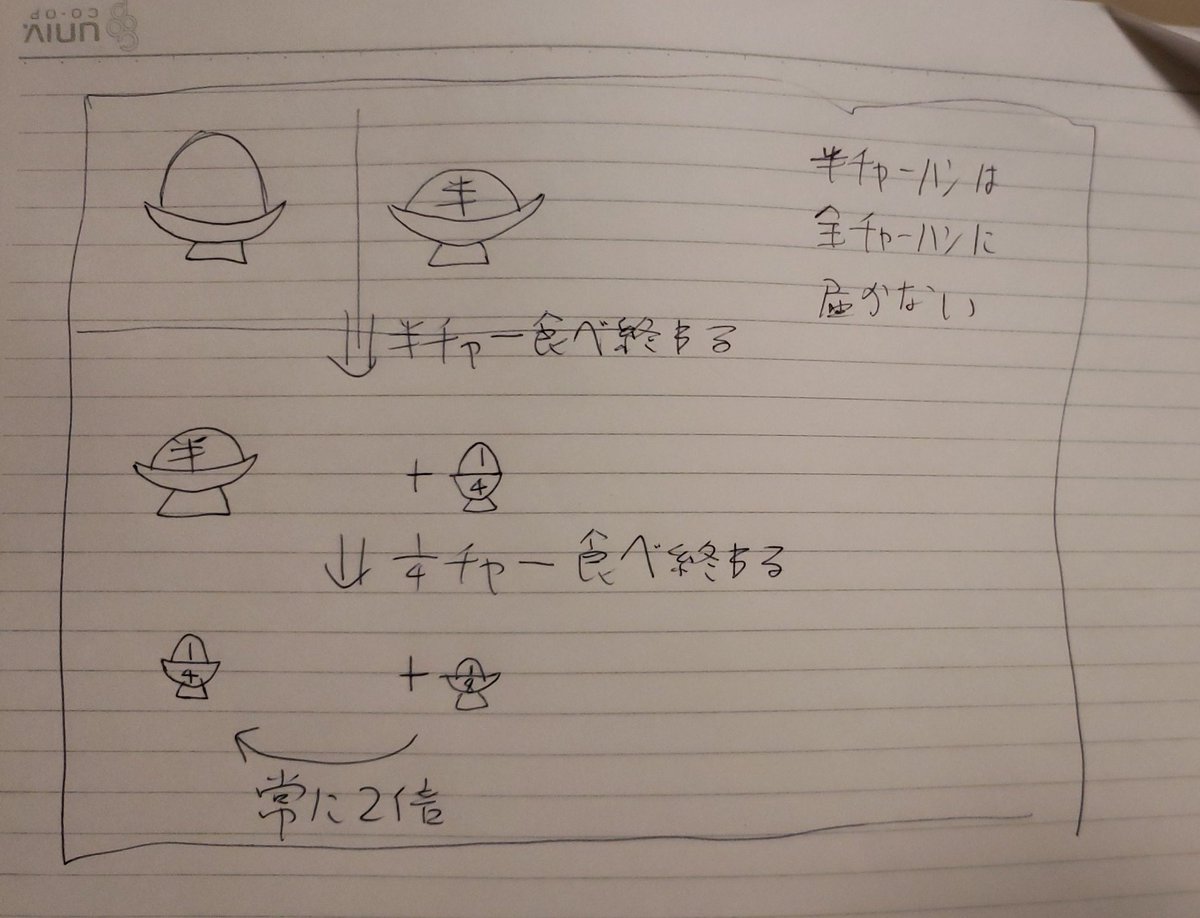 UNIV.
CO-OP
半
半チャーハンは
全チャーハンに
届かない
半チャー食べ終わる
半
+ 1/4
1/4チャー食べ終わる
1/4
+ 1/8
常に2倍